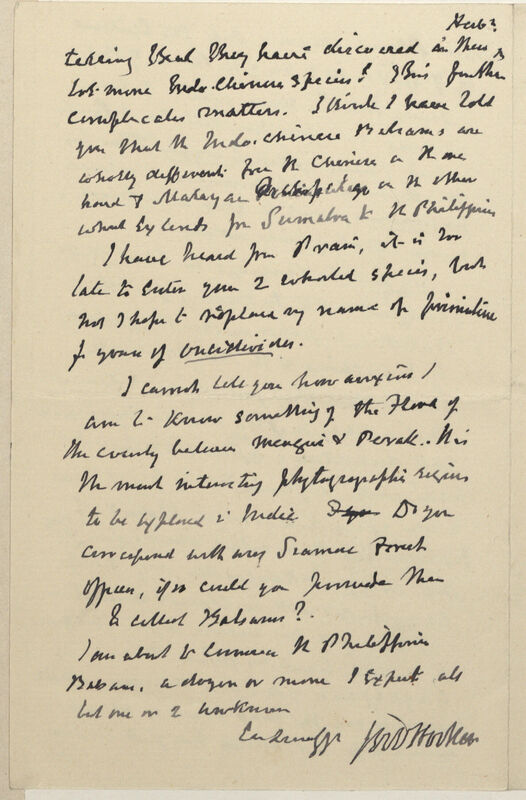 Herb?
telling that they have discovered in their
lot more Indo-Chinese species! This further
complicates matters. I think I have told
you that the Indo-Chinese Balsams are
wholly different from the Chinese on the one
hand & Malayan on the other
which extends from Sumatra to the Philippines
I have heard from Prain, it is too
late to enter your 2 whorled species, but
not I hope to replace my name of
for yours of
I cannot tell you how anxious I
am to know something of the Flora of
the country between Mergui & Perak. It is
the most interesting phytographic region
to be explored in India Do you
correspond with any Siamese Forest
Officers, if so could you persuade them
to collect Balsams?
I am about to commence the Philippine
Balsams, a dozen or more I expect all
but one or 2 unknown
Jos D Hooker